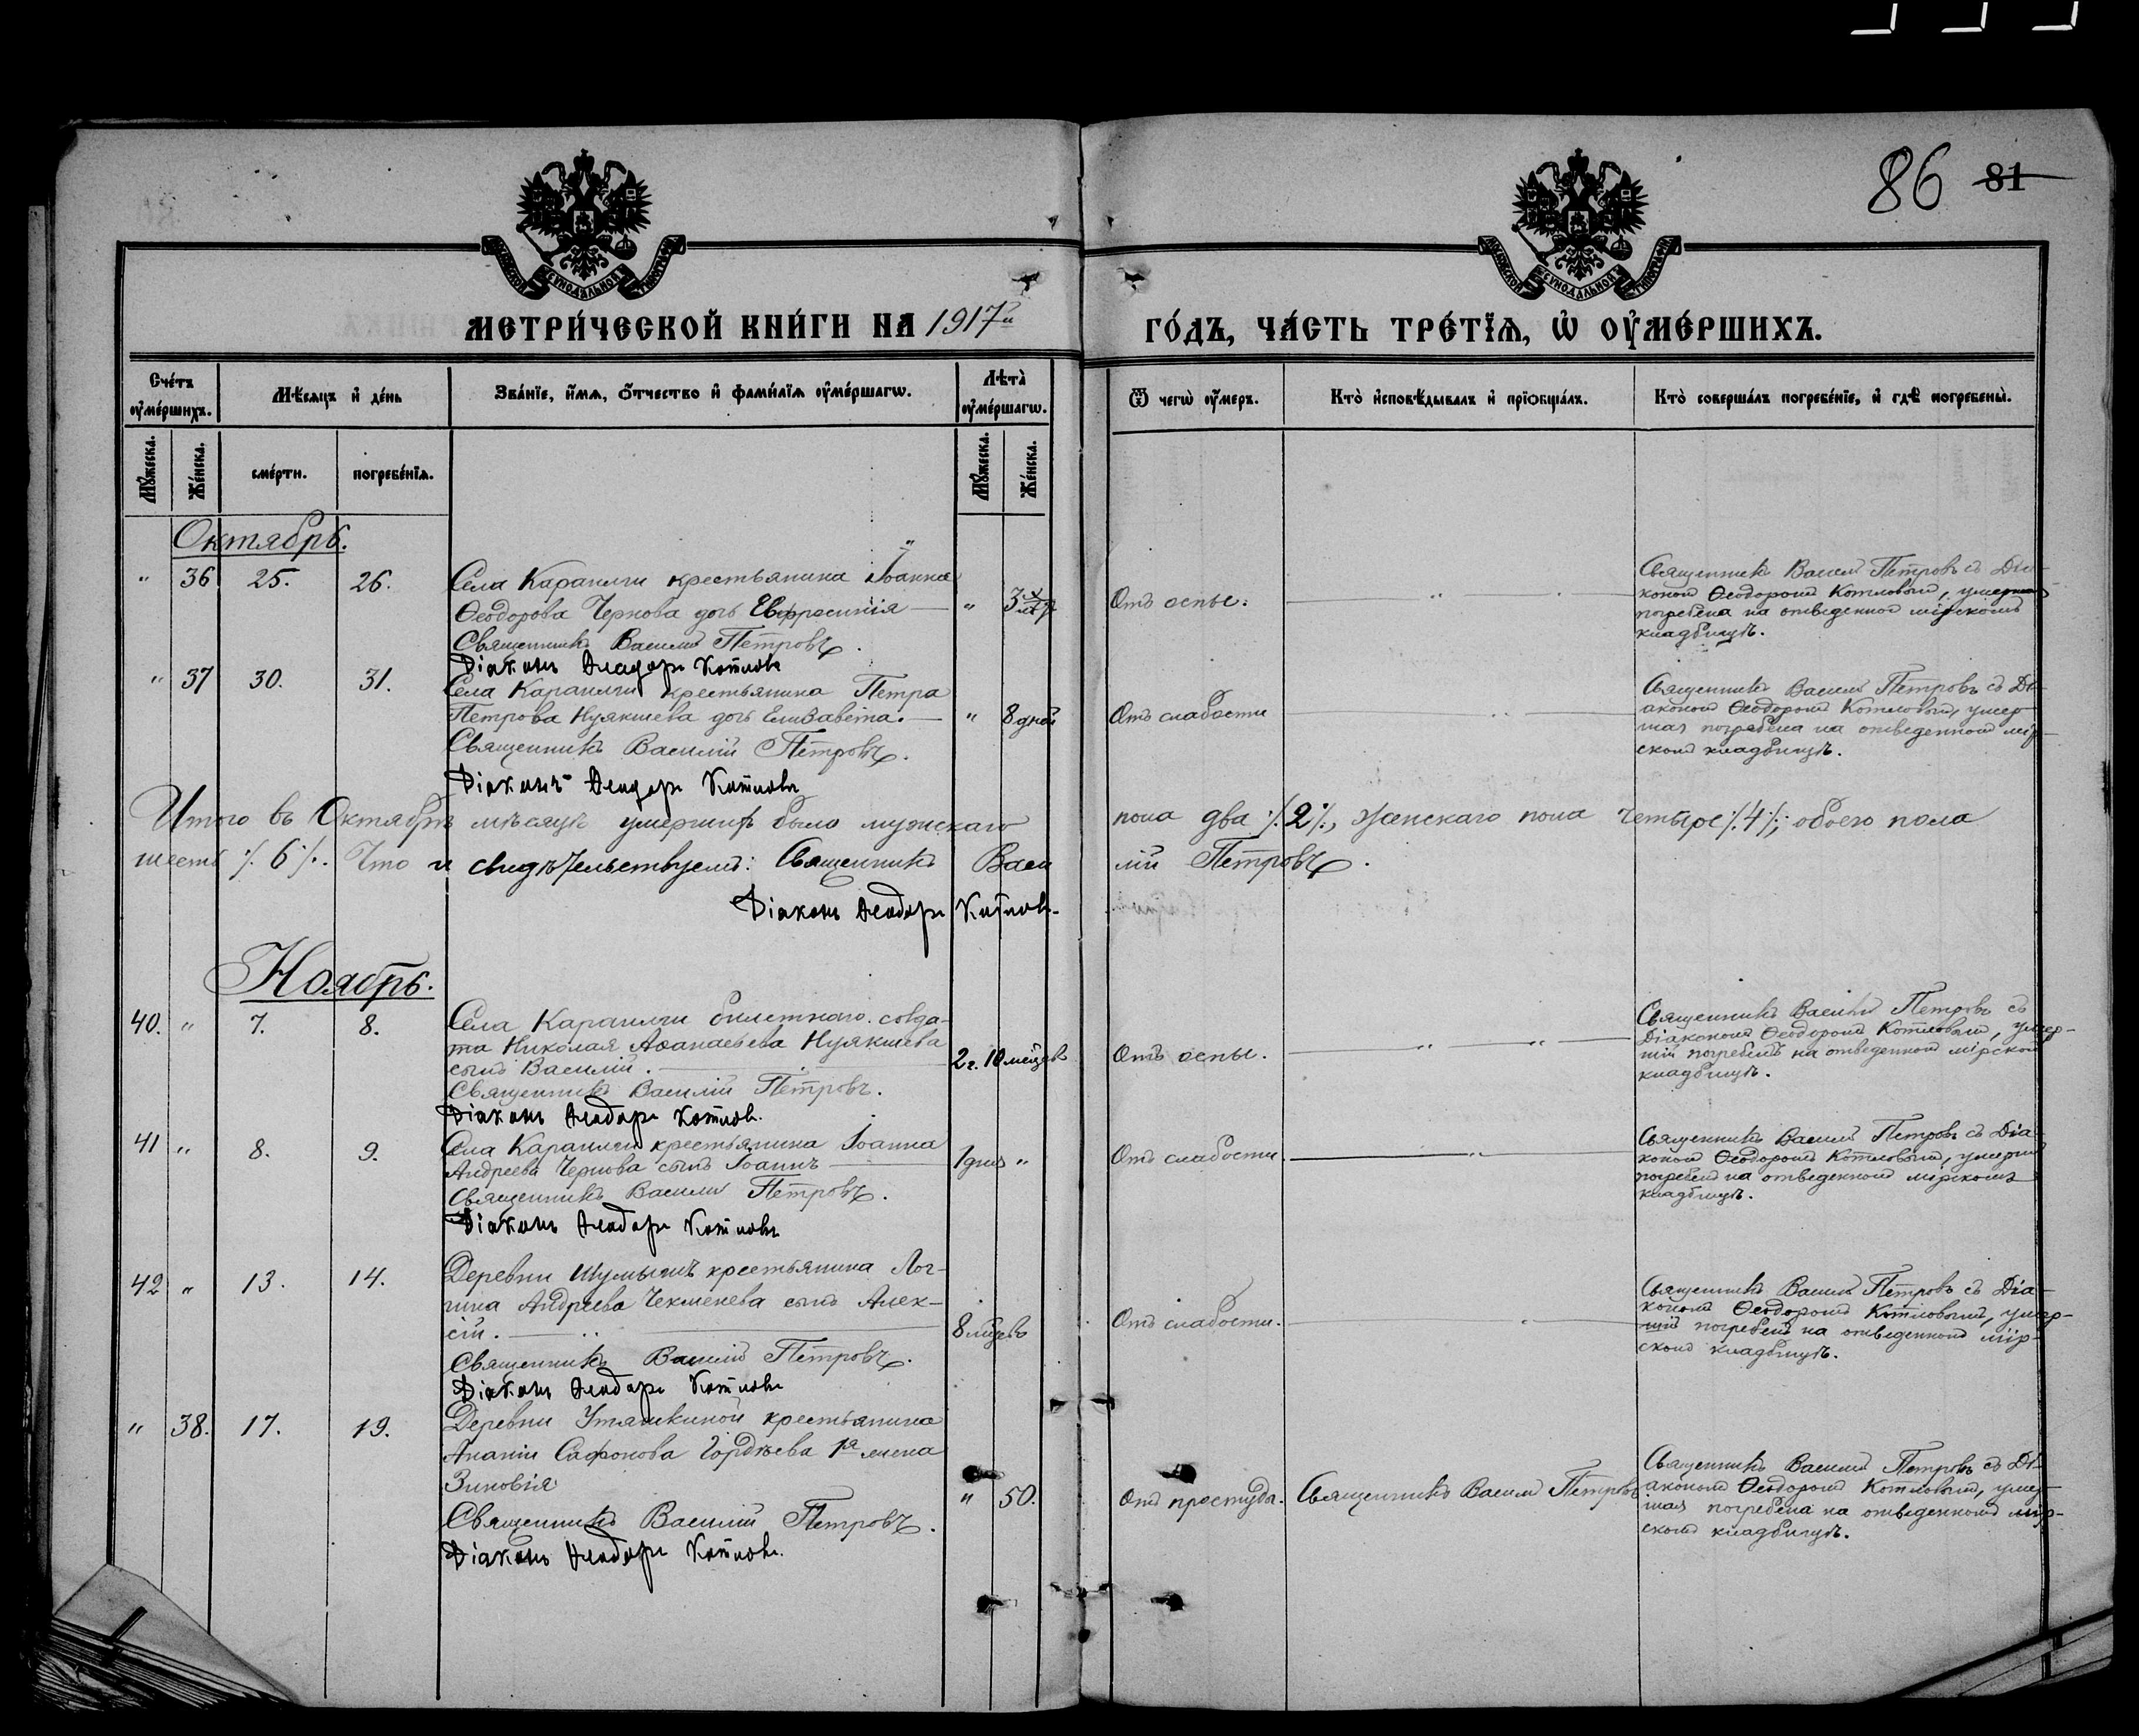 86 81
МОСКОВСКОЙ СѴНОДАЛЬНОЙ ТИПОГРАФІИ
МОСКОВСКОЙ СѴНОДАЛЬНОЙ ТИПОГРАФІИ
МЕТРИ́ЧЕСКОЙ КНИ́ГИ НА 1917й
ГО́ДЪ, ЧА́СТЬ ТРЕ́ТЇѦ, Ѡ҆ ОУ҆МЕ́РШИХЪ.
Сче́тъ оу҆ме́ршихъ.
Мѣ́сяцъ и҆ де́нь
Зва́нїе, и҆́мѧ, ѻ҆́тчество и҆ фами́лїѧ оу҆ме́ршагѡ.
Лѣта̀ оу҆ме́ршагѡ.
Ѿ чегѡ̀ оу҆́меръ.
Кто̀ и҆сповѣ́дывалъ и҆ прїѡбща́лъ.
Кто̀ соверша́лъ погребе́нїе, и҆ гдѣ̀ погребены̀.
Мꙋ́жеска.
Же́нска.
сме́рти.
погребе́нїѧ.
Мꙋ́жеска.
Же́нска.
Октябрь.
" 36 25. 26.
Села Караилги крестьянина Іоанна
Ѳеодорова Чернова дочь Евфросинія — "
Священникъ Василій Петровъ.
Діаконъ Ѳеодоръ Котловъ
Отъ оспы.
Священникъ Василій Петровъ съ Діа-
кономъ Ѳеодоромъ Котловымъ, умершая
погребена на отведенномъ мірскомъ
кладбищѣ.
" 37 30. 31.
Села Караилги крестьянина Петра
Петрова Нуякшева дочь Елизавета. — " 8 дней
Священникъ Василій Петровъ.
Діаконъ Ѳеодоръ Котловъ
Отъ слабости
Священникъ Василій Петровъ съ Ді-
акономъ Ѳеодоромъ Котловымъ, умер-
шая погребена на отведенномъ мір-
скомъ кладбищѣ.
Итого въ Октябрѣ мѣсяцѣ умершихъ было мужскаго пола два /2/, женскаго пола четыре /4/; обоего пола
шесть /6/. Что и свидѣтельствуемъ: Священникъ Василій Петровъ.
Діаконъ Ѳеодоръ Котловъ.
Ноябрь.
40. " 7. 8.
Села Караилги билетнаго солда-
та Николая Аѳанасьева Нуякшева
сынъ Василій. — 2 г. 10 мѣсяцевъ
Священникъ Василій Петровъ.
Діаконъ Ѳеодоръ Котловъ.
Отъ оспы.
Священникъ Василій Петровъ съ
Діакономъ Ѳеодоромъ Котловымъ, умер-
шій погребенъ на отведенномъ мірскомъ
кладбищѣ.
41 " 8. 9.
Села Караилги крестьянина Іоанна
Андреева Чернова сынъ Іоаннъ — 1 дня "
Священникъ Василій Петровъ.
Діаконъ Ѳеодоръ Котловъ
Отъ слабости.
Священникъ Василій Петровъ съ Діа-
кономъ Ѳеодоромъ Котловымъ, умершій
погребенъ на отведенномъ мірскомъ
кладбищѣ.
42 " 13. 14.
Деревни Шумышъ крестьянина Лог-
гина Андреева Чекменева сынъ Алек-
сій. — 8 мѣсяцевъ
Священникъ Василій Петровъ.
Діаконъ Ѳеодоръ Котловъ
Отъ слабости.
Священникъ Василій Петровъ съ Діа-
кономъ Ѳеодоромъ Котловымъ, умер-
шій погребенъ на отведенномъ мір-
скомъ кладбищѣ.
" 38. 17. 19.
Деревни Утяшкиной крестьянина
Ананіи Сафонова Гордѣева 1я жена
Зиновія " 50.
Священникъ Василій Петровъ.
Діаконъ Ѳеодоръ Котловъ.
Отъ простуды.
Священникъ Василій Петровъ
Священникъ Василій Петровъ съ Ді-
акономъ Ѳеодоромъ Котловымъ, умер-
шая погребена на отведенномъ мір-
скомъ кладбищѣ.